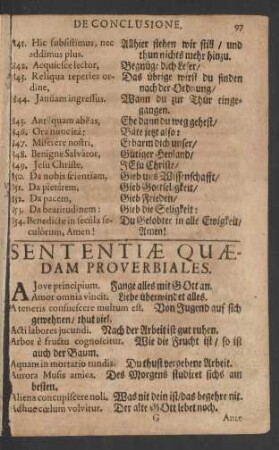 DE CONCLUSIONE. 97
841. Hic subsistimus, nec Allhier stehen wir still / und
addimus plus. thun nichts mehr hinzu.
842. Acquiesce lector, Begnüge dich Leser/
843. Reliqua reperies or- Das übrige wirst du finden
dine, nach der Ordnung/
844. Januam ingressus. Wann du zur Thür einge-
gangen.
845. Antequam abeas, Ehe dann du weg gehest/
846. Ora nunc ita: Bäte jetzt also:
847. Miserere nostri, Erbarm dich unser/
848. Benigne Salvator, Gütiger Heyland/
849. Jesu Christe, JEsu Christe/
850. Da nobis scientiam, Gieb uns Wissenschafft/
851. Da pietatem, Gieb Gottseligkeit/
852. Da pacem, Gieb Frieden/
853. Da beatitudinem: Gieb die Seligkeit:
854. Benedicte in secula se- Du Gelobter in alle Ewigkeit/
culorum, Amen! Amen!
SENTENTIÆ QUÆ-
DAM PROVERBIALES.
A Jove principium. Fange alles mit GOtt an.
Amor omnia vincit. Liebe überwindet alles.
A teneris consuescere multum est. Von Jugend auf sich
gewehnen/ thut viel.
Acti labores jucundi. Nach der Arbeit ist gut ruhen.
Arbor è fructu cognoscitur. Wie die Frucht ist / so ist
auch der Baum.
Aquam in mortario tundis. Du thust vergebene Arbeit.
Aurora Musis amica. Des Morgens studiret sichs am
besten.
Aliena concupiscere noli. Was nit dein ist/das begehre nit.
Adhuc cœlum volvitur. Der alte GOtt lebet noch.
G Ante